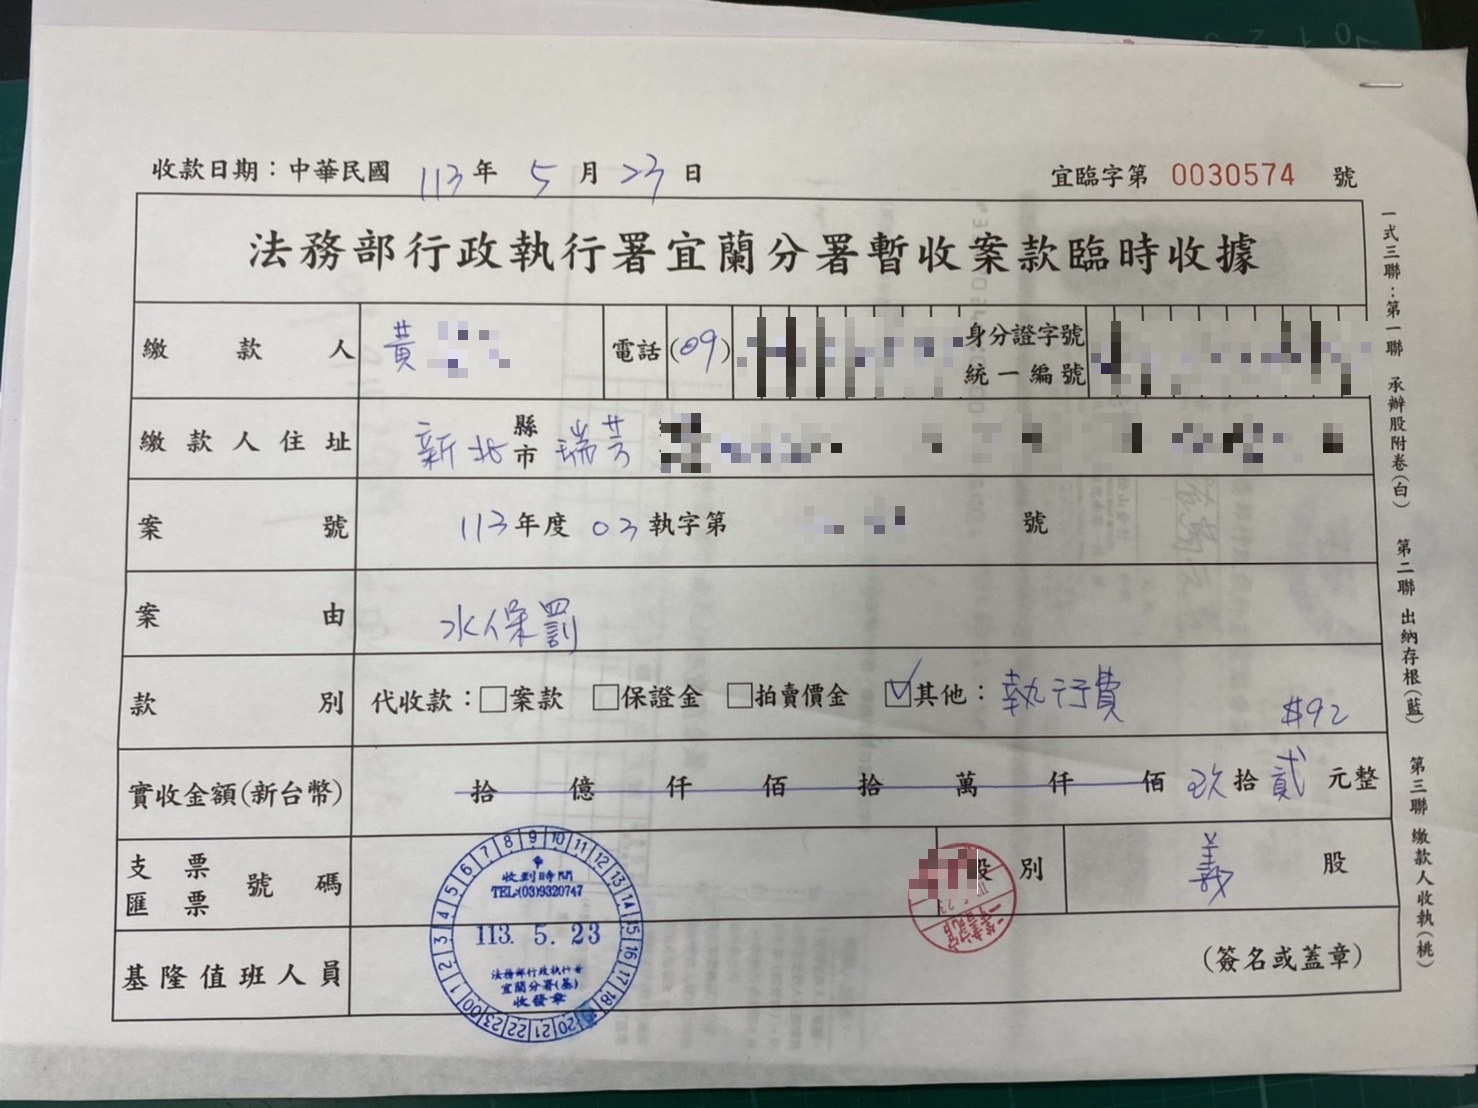 收款日期：中華民國 113 年 5 月 23 日
宜臨字第 0030574 號
法務部行政執行署宜蘭分署暫收案款臨時收據
繳款人 黃 電話 (09) 身分證字號 統一編號
繳款人住址 新北 縣市 瑞芳
案號 113 年度 03 執字第 號
案由 水保罰
款別 代收款：□案款 □保證金 □拍賣價金 ☑其他：執行費 $92
實收金額(新台幣) 拾 億 仟 佰 拾 萬 仟 佰 玖 拾 貳 元整
支票 匯票 號碼 股別 義 股
基隆值班人員 (簽名或蓋章)
收到時間
TEL:(03)9320747
113. 5. 23
法務部行政執行署
宜蘭分署(基)
收發章
00 1 2 3 4 5 6 7 8 9 10 11 12 13 14 15 16 17 18 20 21 22 23
一式三聯：第一聯 承辦股附卷(白) 第二聯 出納存根(藍) 第三聯 繳款人收執(桃)